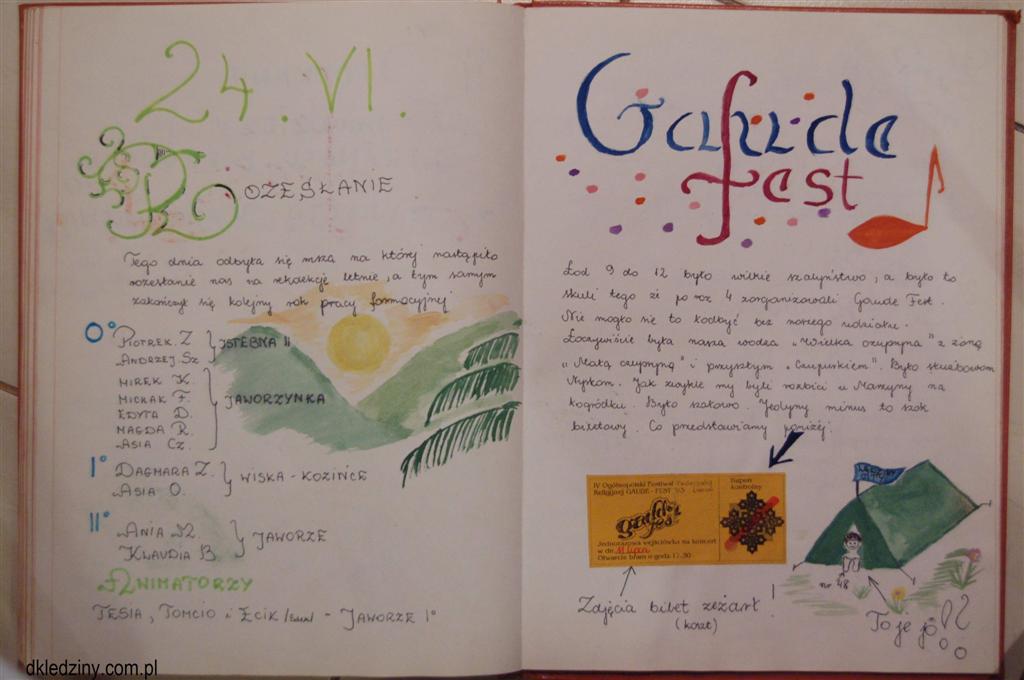 24. VI.
ROZESŁANIE
Tego dnia odbyła się msza na której nastąpiło
rozesłanie nas na rekolekcje letnie, a tym samym
zakończył się kolejny rok pracy formacyjnej
0° PIOTREK. Z ISTEBNA II
ANDRZEJ. SZ
MIREK K.
MICHAŁ F. JAWORZYNKA
EDYTA D.
MAGDA R.
ASIA CZ.
I° DAGMARA Z. WISŁA - KOZIŃCE
ASIA O.
II° ANIA JAWORZE
KLAUDIA B
ANIMATORZY
TESIA, TOMCIO i ECIK - JAWORZE I°
Gaude
fest
Łod 9 do 12 było wilkie szaleństwo, a było to
skuli tego że po roz 4 zorganizowali Gaude Fest.
Nie mogło się to łodbyć bez naszego udziału.
Łoczywiście była nasza wodza „Wielka czupryna" z żoną
„Małą czupryną" i przyszłym „Czupurkiem". Było
Jak zwykle my byli rozbici u Martyny na
łogródku. Było szałowo. Jedyny minus to szok
biletowy. Co przedstawiamy poniżej.
IV Ogólnopolski Festiwal
Religijnej GAUDE - FEST '93
Kupon
kontrolny
gaude
fest
Jednorazowa wejściówka na koncert
w dn. 11 lipca
Otwarcie bram o godz. 17.30
Zdjęcia bilet zeżarł!
(koszt)
nr 48
To je jo!?
dkledziny.com.pl